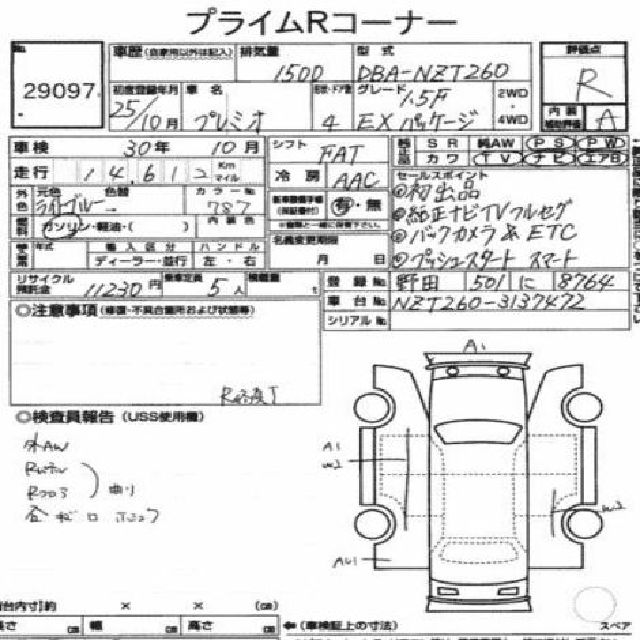 プライムRコーナー
No. 29097
車歴 (自家用以外は記入) 排気量 1500 型式 DBA-NZT260 評価点 R
初度登録年月 25/10月 車名 プレミオ 4 グレード 1.5F EX パッケージ 2WD 4WD 内装 A
車検 30年 10月 シフト FAT SR 純AW PS PW
走行 14,612 Km マイル 冷房 AAC カワ TV ナビ エアB
外色 元色 ライトブルー 色替 カラーNo. 787 内装色 有・無 セールスポイント
①初出品
②純正ナビTVフルセグ
③バックカメラ& ETC
④プッシュスタート スマート
ガソリン・軽油・( ) 名義変更期限 月 日
年式 輸入区分 ハンドル
ディーラー・並行 左・右
リサイクル預託金 11230円 乗車定員 5人 積載量 t 登録No. 野田 501 に 8764
車台No. NZT260-3137472
シリアルNo.
○注意事項 (修復・不具合箇所および状態等)
○検査員報告 (USS使用欄)
外AW
A1
A1
W2
W3
台内寸)約 × × (cm)
高さ (cm) 幅 (cm) 高さ (cm) ← (車検証上の寸法) スペア